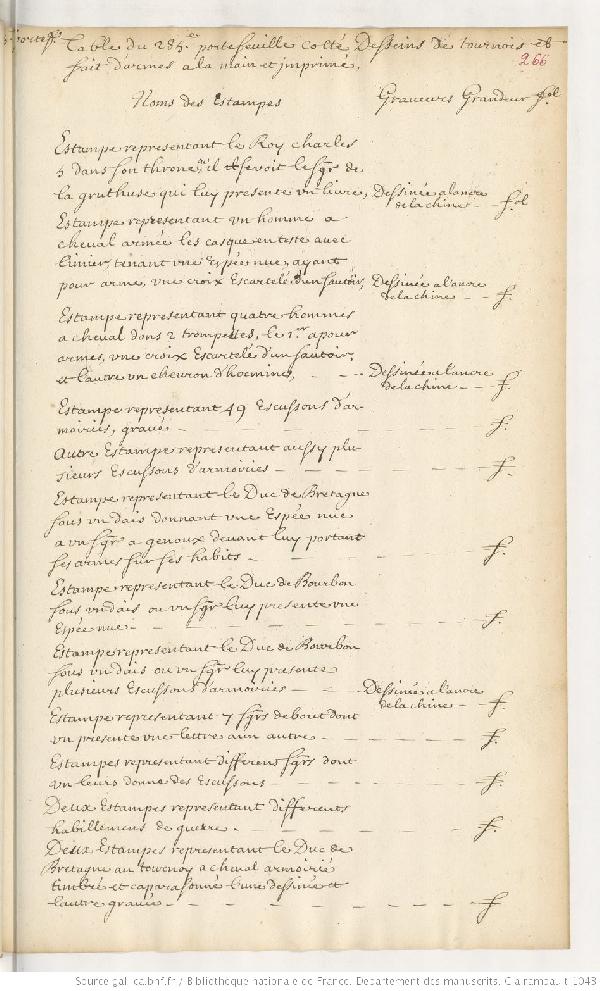 Table du 285.e portefeuille cotté Desseins de tournois et
fait d'armes a la main et jmprimé,
266
Noms des Estampes Graveurs Grandeur fol
Estampe representant le Roy charles
5 dans son throne, qu'il recevoit le sgr de
la gruthuse qui luy presente vn livre, Dessinée a lancre
de la chine - - fol
Estampe representant vn homme a
cheval armée les casque en teste avec
timier, tenant vne Espée nue, ayant
pour arme, vne croix Escartelé d'un sautoir, Dessinée a l'ancre
de la chine - - f.
Estampe representant quatre hommes
a cheval dons 2 trompettes, le 1.er a pour
armes, vne croix Escartelé d'un sautoir,
et l'autre vn chevron d'hermines, - - - Dessinée a l'ancre
de la chine - - f.
Estampe representant 49 Escussons d'ar-
moiries, gravé - - - f.
Autre Estampe representant aussy plu-
sieurs Escussons d'armoiries - - - f.
Estampe representant le Duc de Bretagne
sous vn dais donnant vne Espée nue
a vn sgr a genoux devant luy portant
ses armes sur ses habits - - - f.
Estampe representant le Duc de Bourbon
sous vn dais ou vn sgr luy presente vne
Espée nue - - - f.
Estampe representant le Duc de Bourbon
sous vn dais ou vn sgr luy presente
plusieurs Escussons d'armoiries - - - Dessinée a l'ancre
de la chine - - f.
Estampe representant 7 sgrs debout dont
vn presente vne lettre aux autre - - - f.
Estampes representant differens sgrs dont
vn leurs donne des Escussons - - - f.
Deux Estampes representant differents
habillemens de guerre. - - - f.
Deux Estampes representant le Duc de
Bretagne au tournoy a cheval armoirié
timbré et caparassonné l'une dessinée et
l'autre gravée - - - f
Source gallica.bnf.fr / Bibliothèque nationale de France. Département des manuscrits. Clairambault 1043